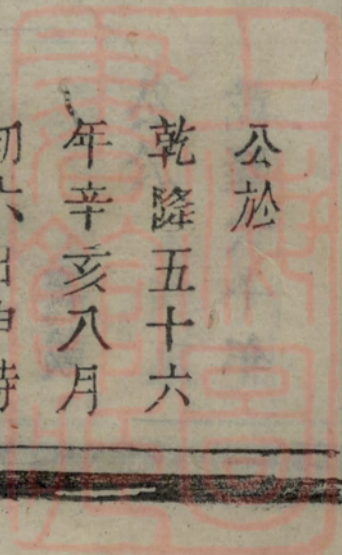 公於
乾隆五十六
年辛亥八月
初六日申時